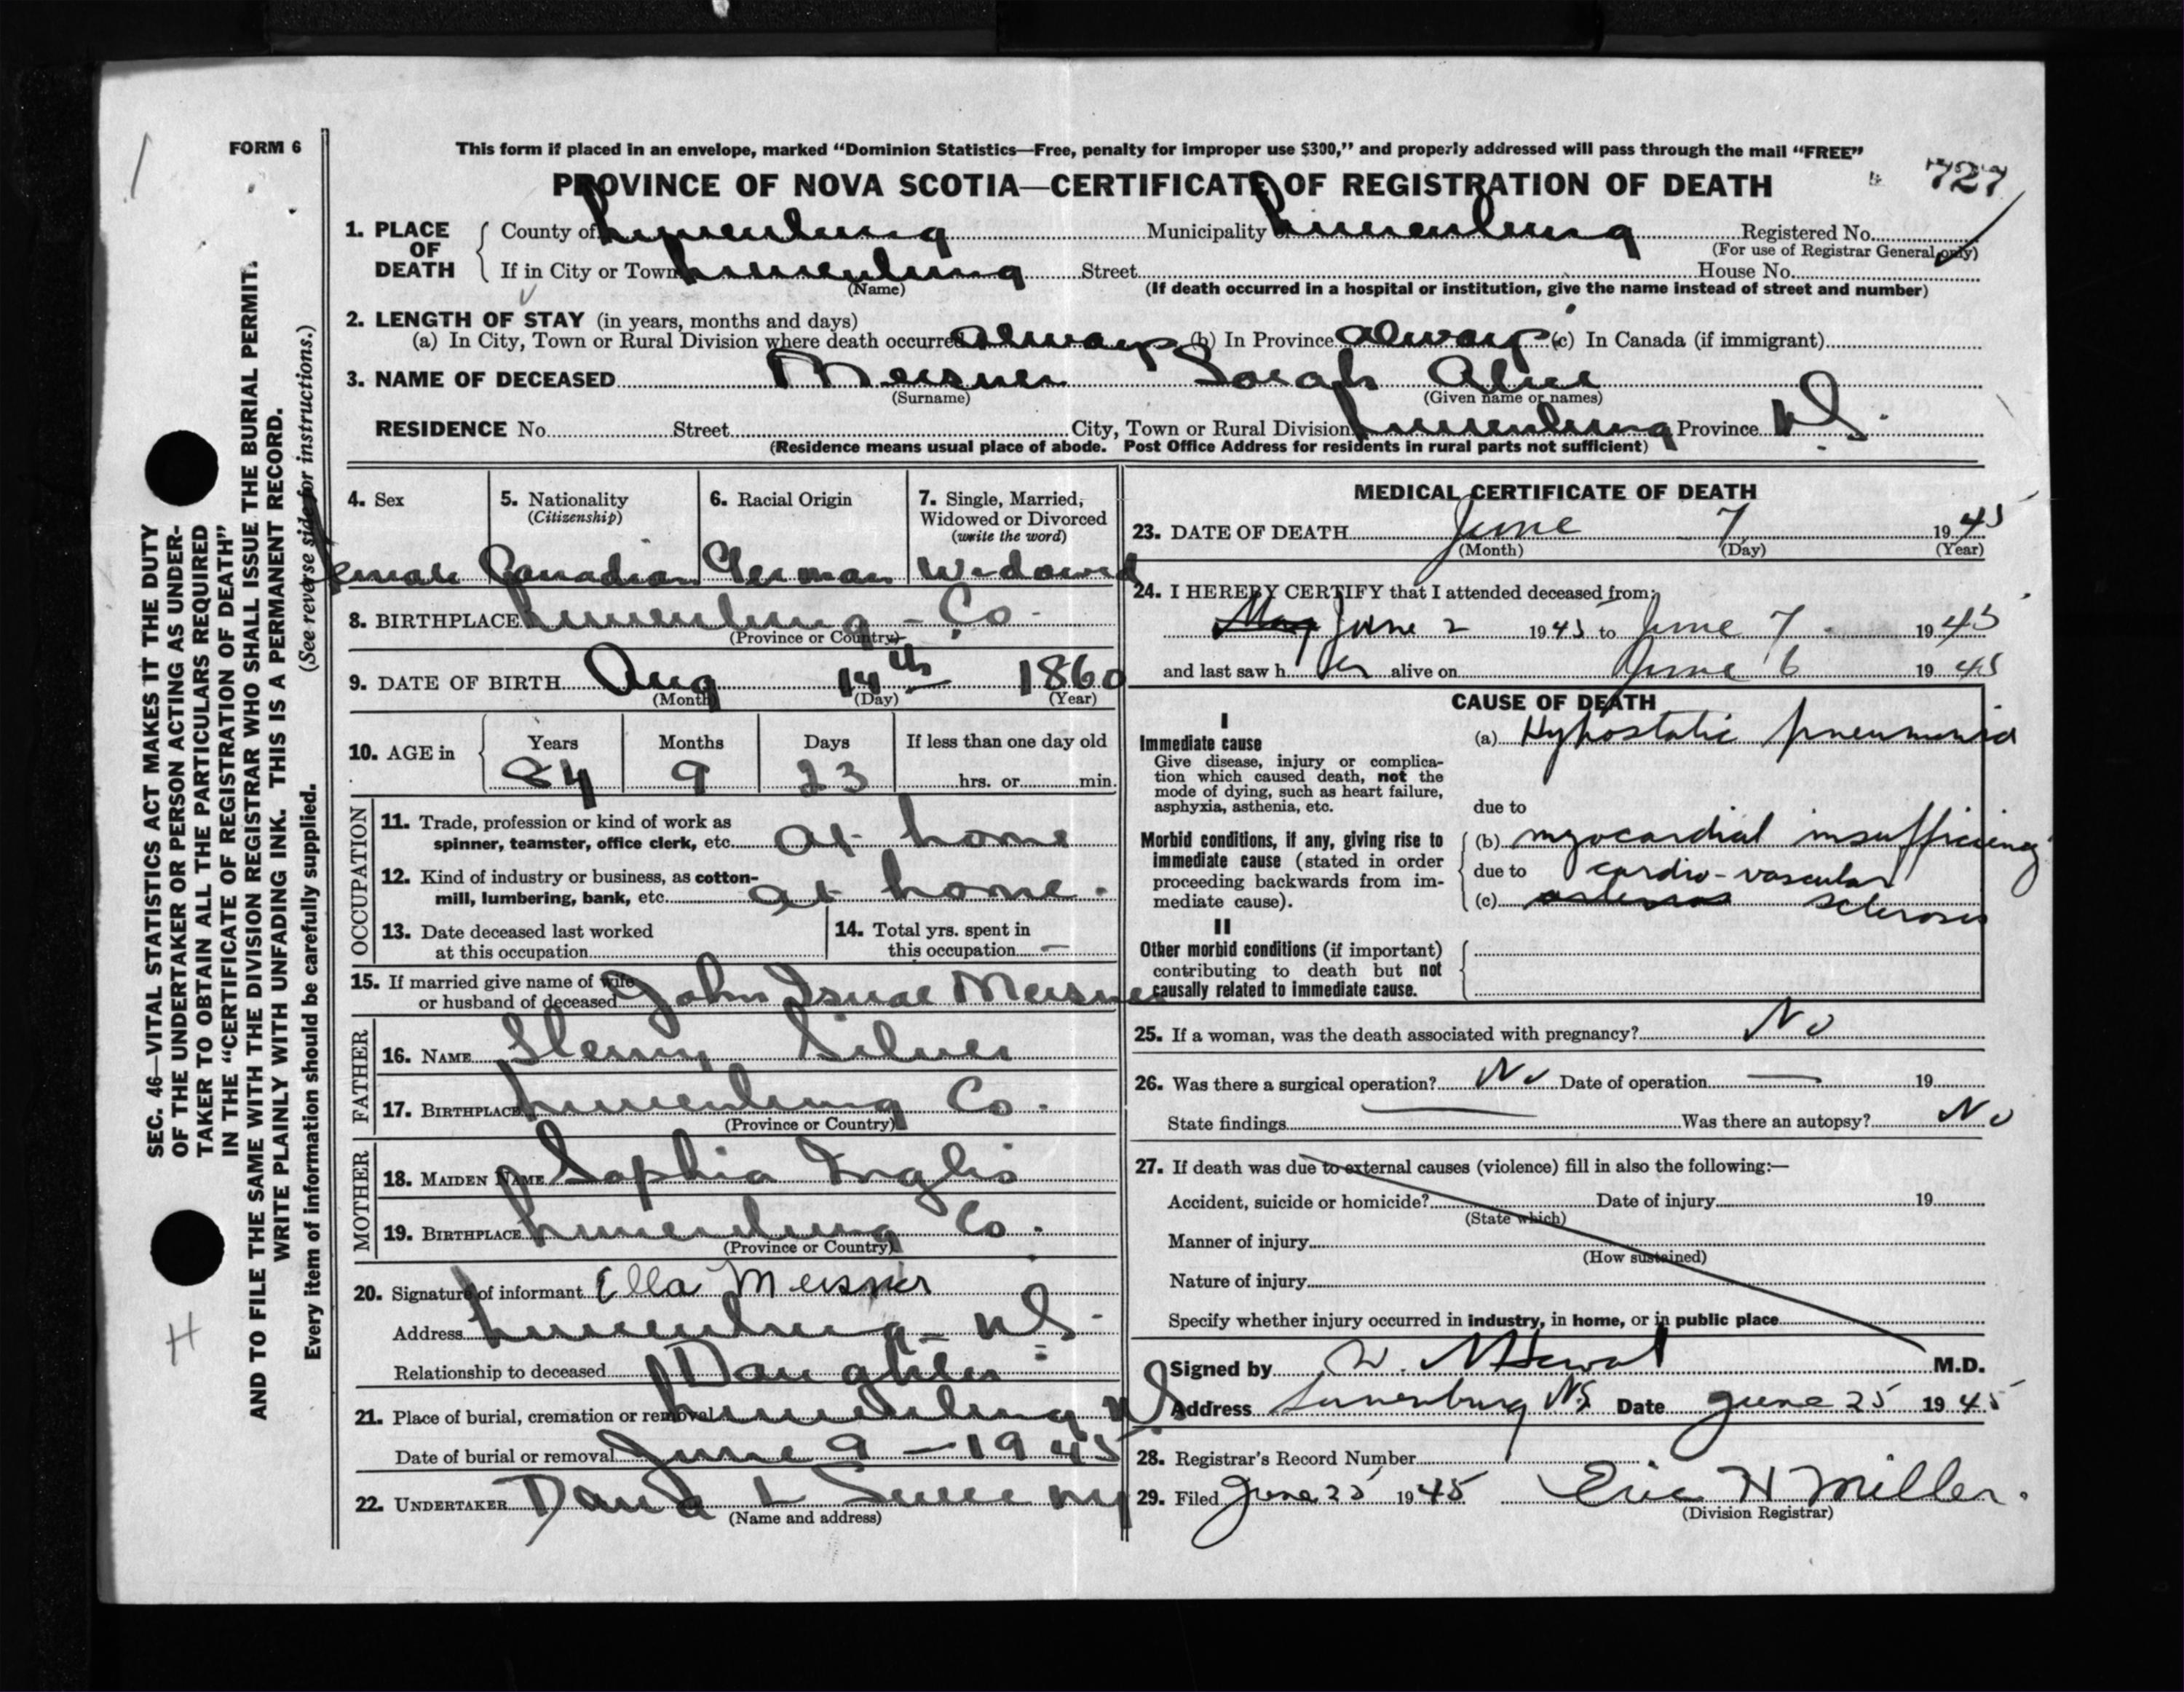 FORM 6
This form if placed in an envelope, marked “Dominion Statistics—Free, penalty for improper use $300,” and properly addressed will pass through the mail “FREE”
PROVINCE OF NOVA SCOTIA—CERTIFICATE OF REGISTRATION OF DEATH
727
1. PLACE OF DEATH
County of Lunenburg Municipality Lunenburg Registered No.
(For use of Registrar General only)
If in City or Town Lunenburg Street House No.
(Name)
(If death occurred in a hospital or institution, give the name instead of street and number)
2. LENGTH OF STAY (in years, months and days)
(a) In City, Town or Rural Division where death occurred always (b) In Province always (c) In Canada (if immigrant)
3. NAME OF DECEASED Meisner Sarah Alice
(Surname) (Given name or names)
RESIDENCE No. Street City, Town or Rural Division Lunenburg Province N.S.
(Residence means usual place of abode. Post Office Address for residents in rural parts not sufficient)
4. Sex
Female
5. Nationality
(Citizenship)
Canadian
6. Racial Origin
German
7. Single, Married,
Widowed or Divorced
(write the word)
Widowed
8. BIRTHPLACE Lunenburg - Co.
(Province or Country)
9. DATE OF BIRTH Aug 14th 1860
(Month) (Day) (Year)
10. AGE in
Years Months Days If less than one day old
84 9 23 hrs. or min.
OCCUPATION
11. Trade, profession or kind of work as
spinner, teamster, office clerk, etc. at home
12. Kind of industry or business, as cotton-
mill, lumbering, bank, etc. at home.
13. Date deceased last worked
at this occupation
14. Total yrs. spent in
this occupation —
15. If married give name of wife
or husband of deceased John Isaac Meisner
FATHER
16. NAME Henry Silver
17. BIRTHPLACE Lunenburg Co.
(Province or Country)
MOTHER
18. MAIDEN NAME Sophia Inglis
19. BIRTHPLACE Lunenburg Co.
(Province or Country)
20. Signature of informant Ella Meisner
Address Lunenburg - N.S.
Relationship to deceased Daughter
21. Place of burial, cremation or removal Lunenburg N.S.
Date of burial or removal June 9 - 1945
22. UNDERTAKER L
(Name and address)
MEDICAL CERTIFICATE OF DEATH
23. DATE OF DEATH June 7 1945
(Month) (Day) (Year)
24. I HEREBY CERTIFY that I attended deceased from:
May June 2 1945 to June 7 1945
and last saw her alive on June 6 1945
CAUSE OF DEATH
I
Immediate cause
Give disease, injury or complica-
tion which caused death, not the
mode of dying, such as heart failure,
asphyxia, asthenia, etc.
(a) Hypostatic pneumonia
due to
Morbid conditions, if any, giving rise to
immediate cause (stated in order
proceeding backwards from im-
mediate cause).
(b) myocardial insufficiency
due to cardio-vascular
(c) sclerosis
II
Other morbid conditions (if important)
contributing to death but not
causally related to immediate cause.
25. If a woman, was the death associated with pregnancy? No
26. Was there a surgical operation? No Date of operation — 19
State findings — Was there an autopsy? No
27. If death was due to external causes (violence) fill in also the following:—
Accident, suicide or homicide? Date of injury 19
(State which)
Manner of injury
(How sustained)
Nature of injury
Specify whether injury occurred in industry, in home, or in public place
Signed by W. M.D.
Address Lunenburg N.S. Date June 25 1945
28. Registrar's Record Number
29. Filed June 25 1945 Eric H Miller.
(Division Registrar)
SEC. 46—VITAL STATISTICS ACT MAKES IT THE DUTY
OF THE UNDERTAKER OR PERSON ACTING AS UNDER-
TAKER TO OBTAIN ALL THE PARTICULARS REQUIRED
IN THE “CERTIFICATE OF REGISTRATION OF DEATH”
AND TO FILE THE SAME WITH THE DIVISION REGISTRAR WHO SHALL ISSUE THE BURIAL PERMIT.
WRITE PLAINLY WITH UNFADING INK. THIS IS A PERMANENT RECORD.
Every item of information should be carefully supplied. (See reverse side for instructions.)
H